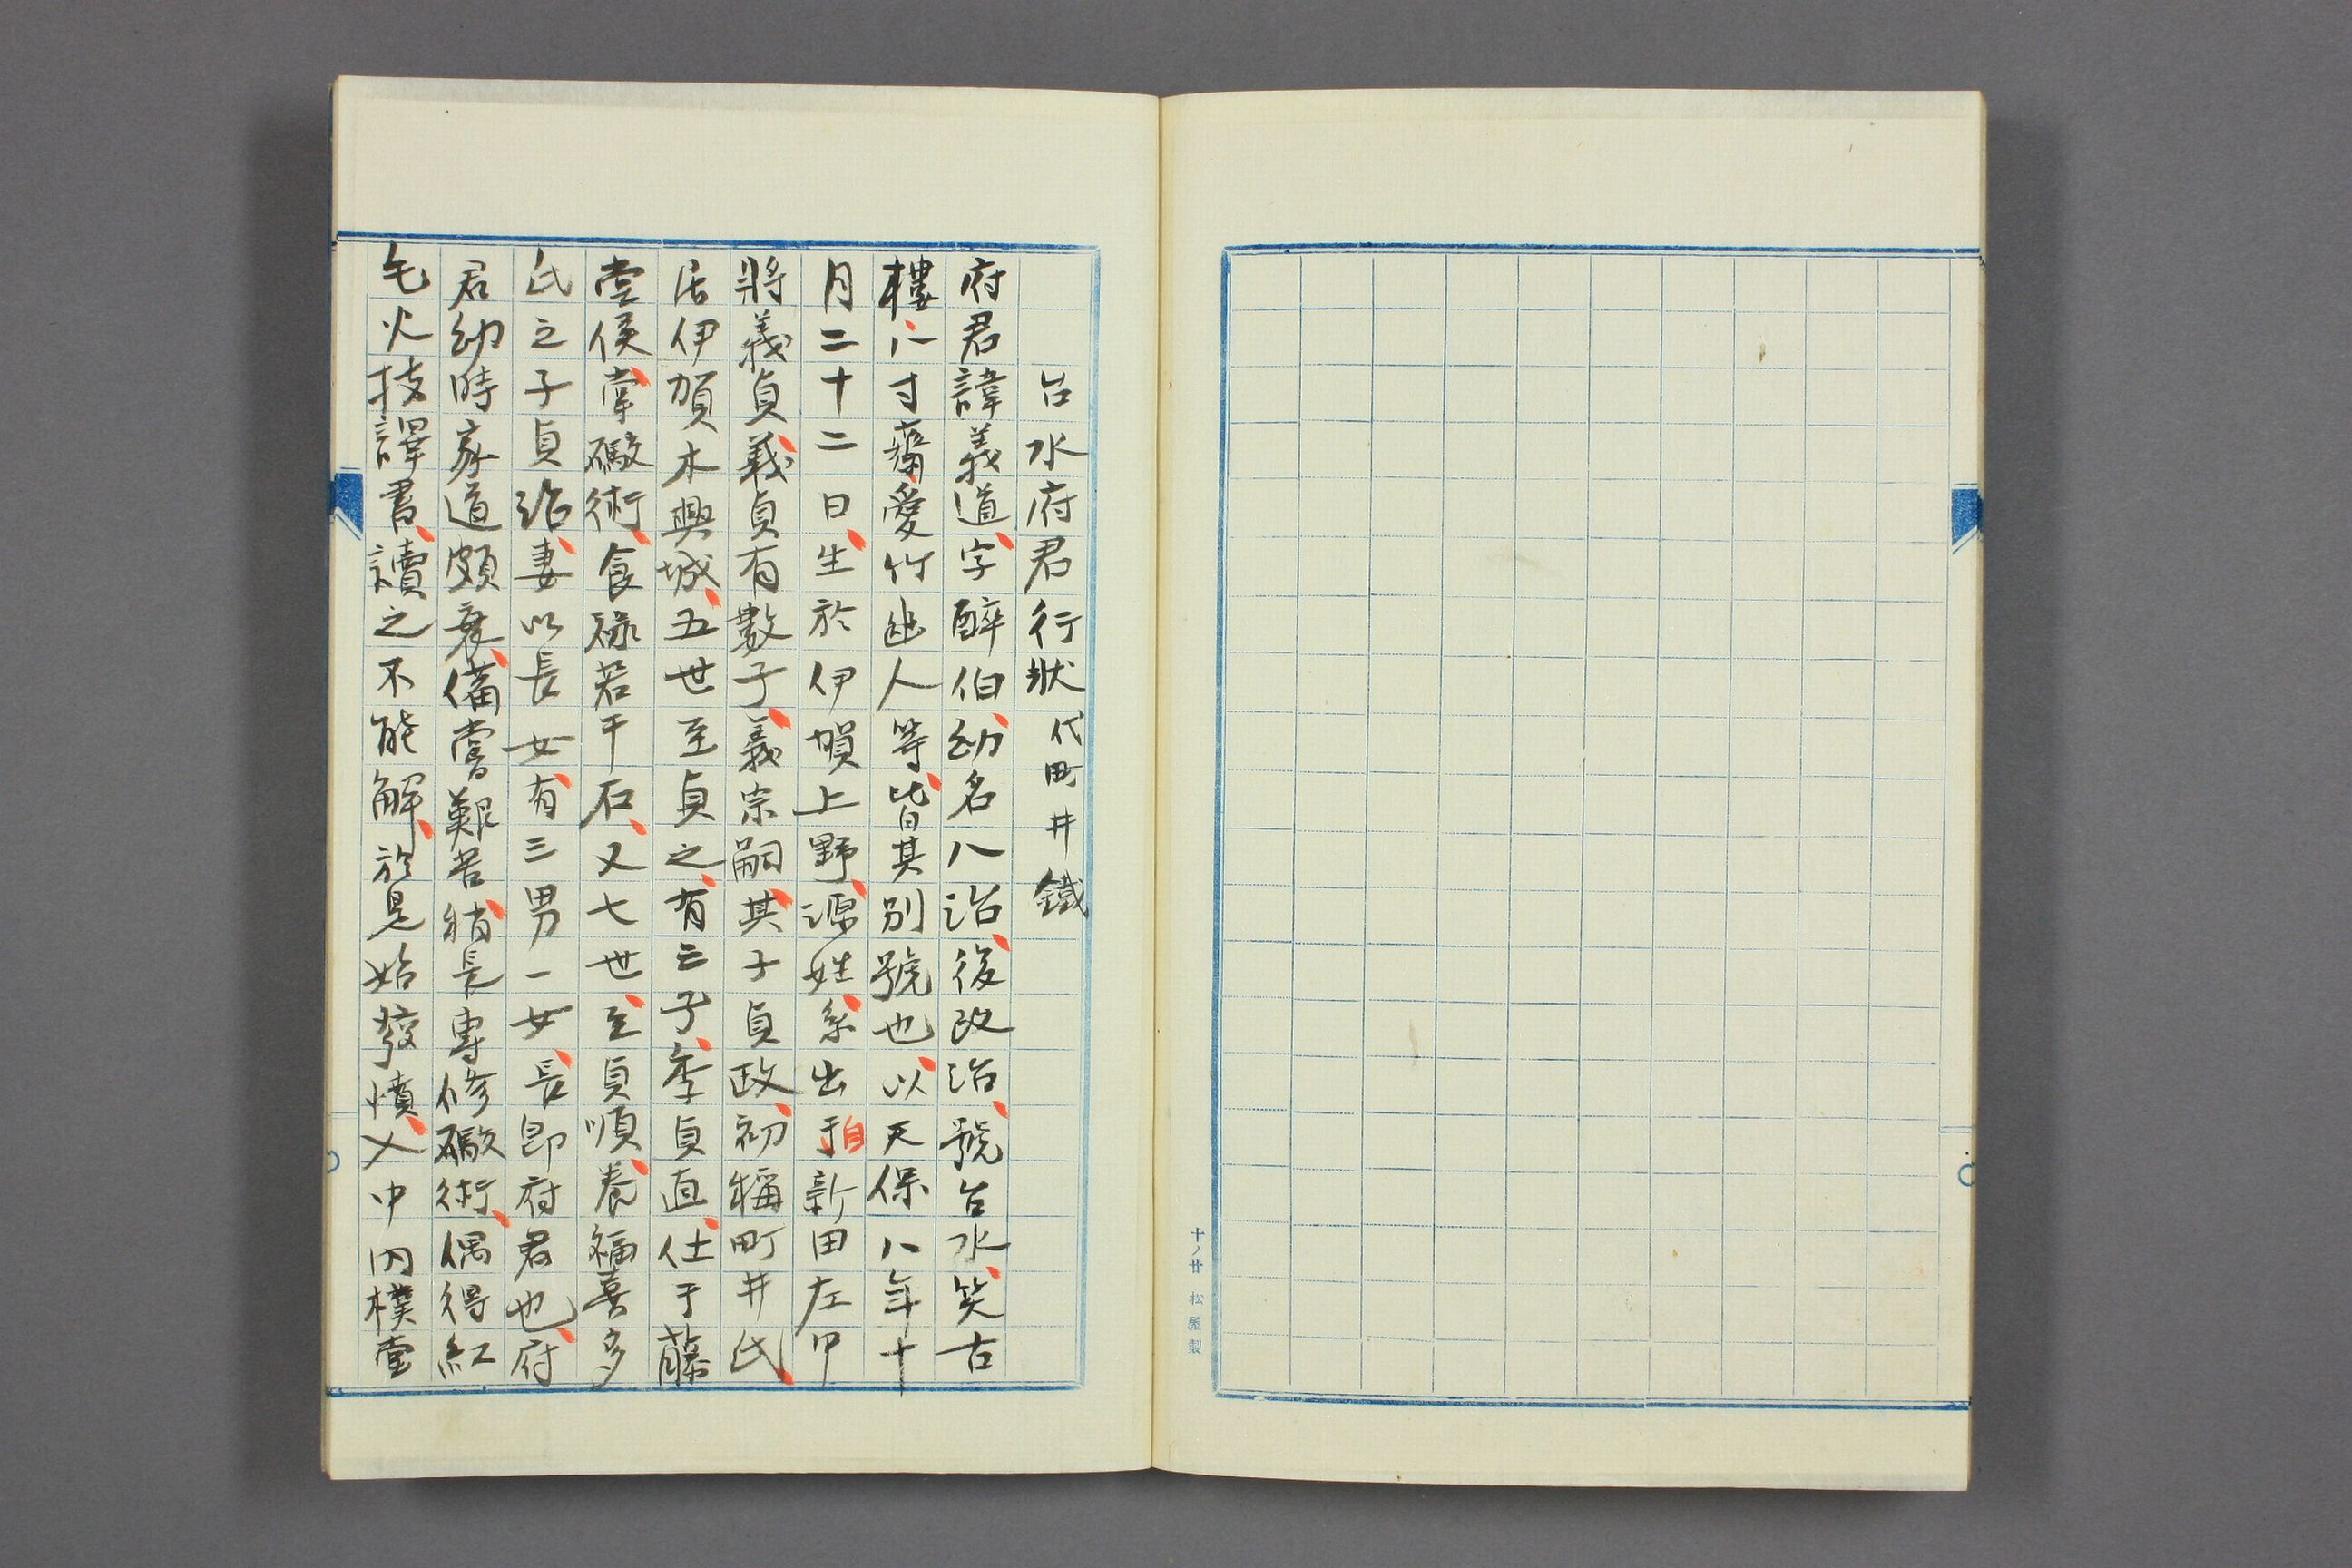 台水府君行狀 代町井鐵
府君諱義道、字醉伯、幼名八治、後改治、號台水、笑古
樓、八寸齋、愛竹幽人等、皆其別號也、以天保八年十
月二十二日、生於伊賀上野、源姓、系出于自新田左中
將義貞、義貞有數子、義宗嗣、其子貞政、初稱町井氏、
居伊賀木興城、五世至貞之、有三子、季貞直、仕于藤
堂侯、掌礮術、食祿若干石、又七世、至貞順、養福喜多
氏之子貞治、妻以長女、有三男一女、長卽府君也、府
君幼時家道頗衰、備嘗艱苦、稍長專修礮術、偶得紅
毛火技譯書、讀之不能解、於是始發憤、入中內樸堂
十ノ廿 松屋製